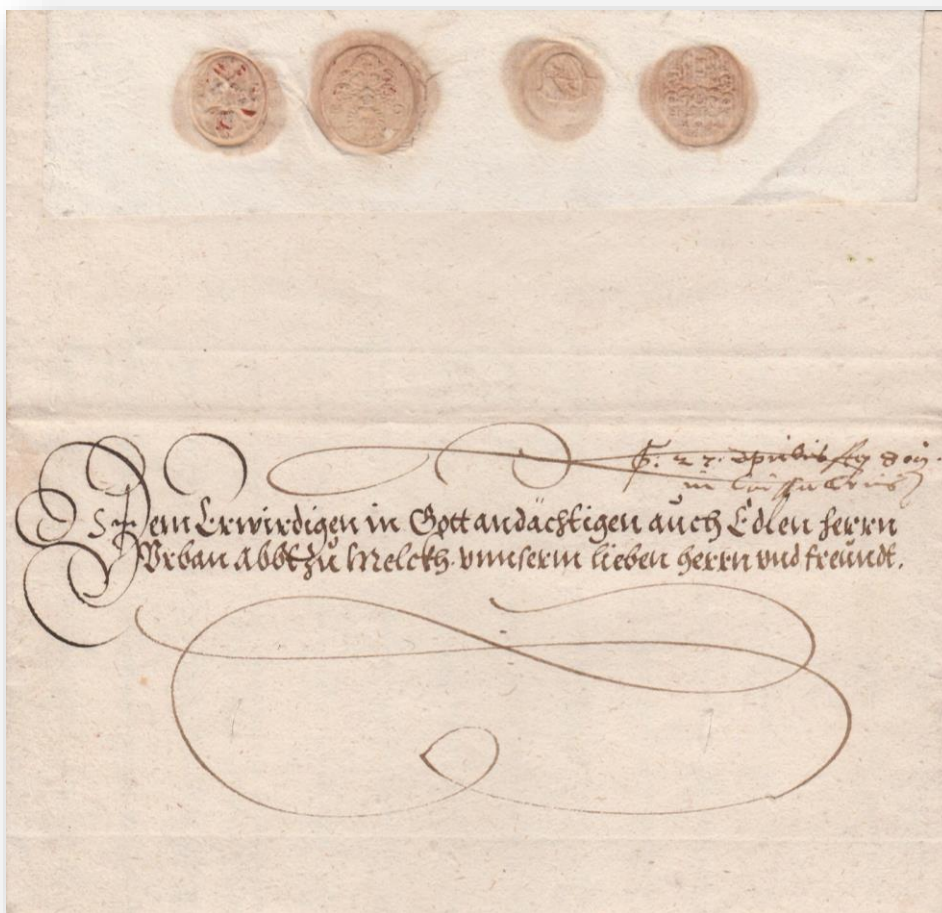 27. Aprilis
in
Dem Erwirdigen in Gott andächtigen auch Edlen herrn
Vrban Abbt zu Melckh. vnnserm lieben herrn vnd freundt.